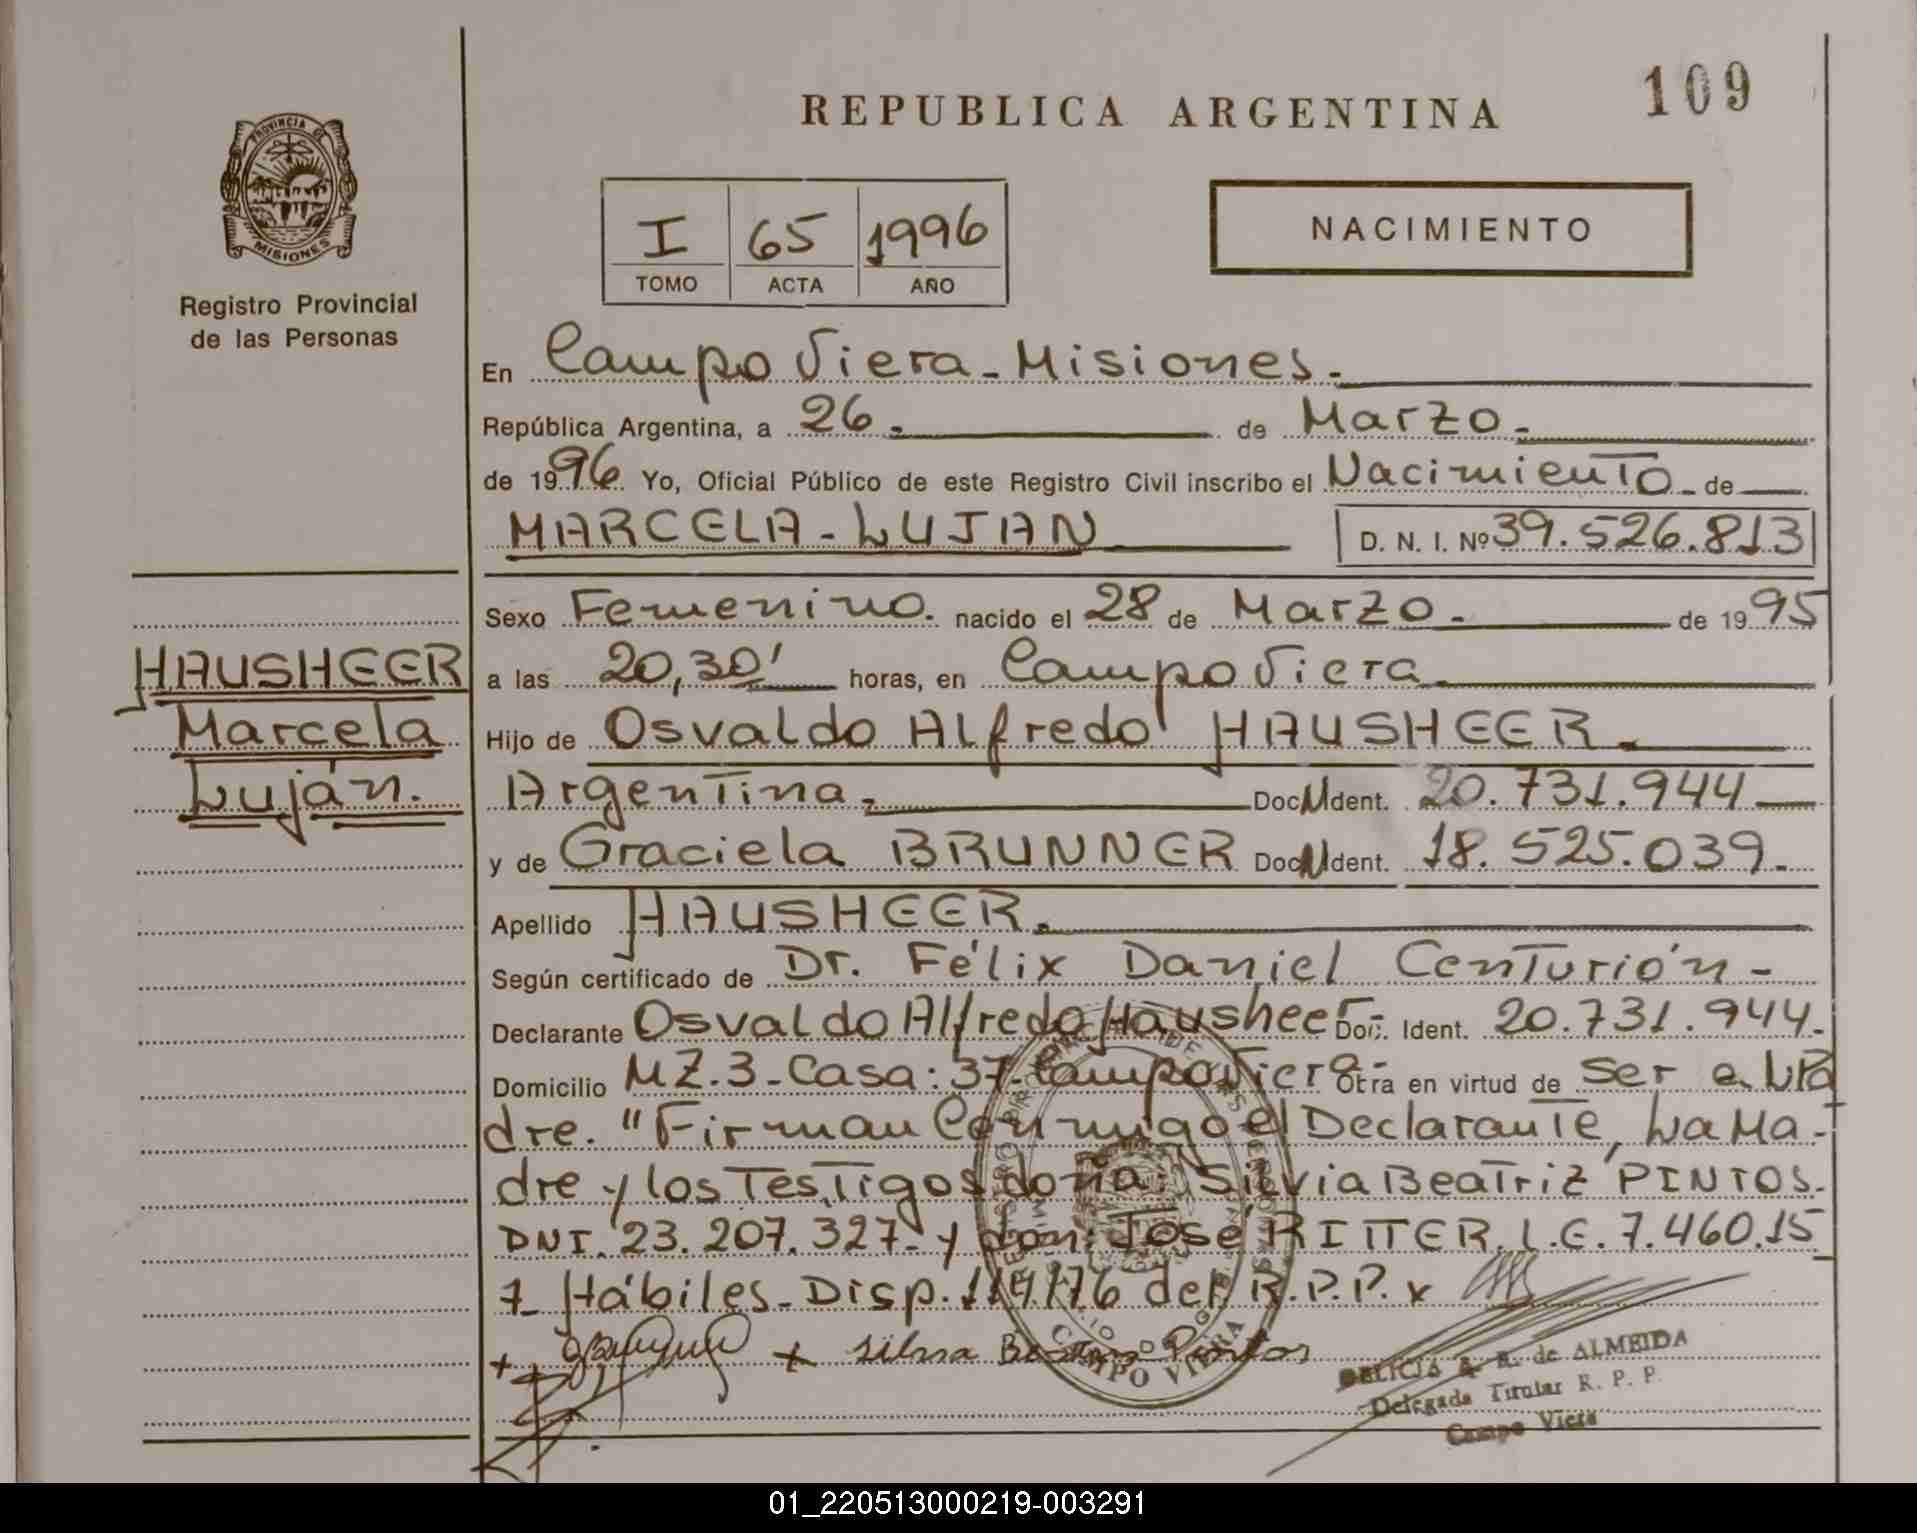 109
REPUBLICA ARGENTINA
PROVINCIA DE
MISIONES
Registro Provincial
de las Personas
I 65 1996
TOMO ACTA AÑO
NACIMIENTO
En Campo Viera - Misiones.
República Argentina, a 26. de Marzo.
de 1996 Yo, Oficial Público de este Registro Civil inscribo el Nacimiento de
MARCELA - LUJAN D. N. I. Nº 39.526.813
Sexo Femenino. nacido el 28 de Marzo. de 1995
HAUSHEER
Marcela
Luján.
a las 20,30' horas, en Campo Viera.
Hijo de Osvaldo Alfredo HAUSHEER.
Argentina, Doc. N Ident. 20.731.944
y de Graciela BRUNNER Doc. N Ident. 18.525.039.
Apellido HAUSHEER.
Según certificado de Dr. Félix Daniel Centurión -
Declarante Osvaldo Alfredo Hausheer Doc. Ident. 20.731.944.
Domicilio MZ. 3 - Casa: 37 - Campo Viera Otra en virtud de Ser el Pa
dre. "Firman Conmigo el Declarante, La Ma-
dre y los Testigos doña: Silvia Beatriz PINTOS.
DNI. 23.207.327- y don: José RITTER. L.E. 7.460.15
7_ Hábiles - Disp. 114/76 del R.P.P. x
+ + Silvia Beatriz Pintos
CAMPO VIERA
DELICIA A. R. de ALMEIDA
Delegada Titular R. P. P.
Campo Viera
01_220513000219-003291